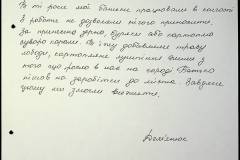 В ті роки мої батьки працювали в колгоспі
З роботи не дозволяли нічого приносити.
За принесені зерно, буряк або картоплю
суворо карали. В їжу добавляли траву
лободи, картопляне лушпіння. Жили з
того що росло в нас на городі. Батько
пішов на заробітки до міста. Завдяки
цьому ми змогли вижити.